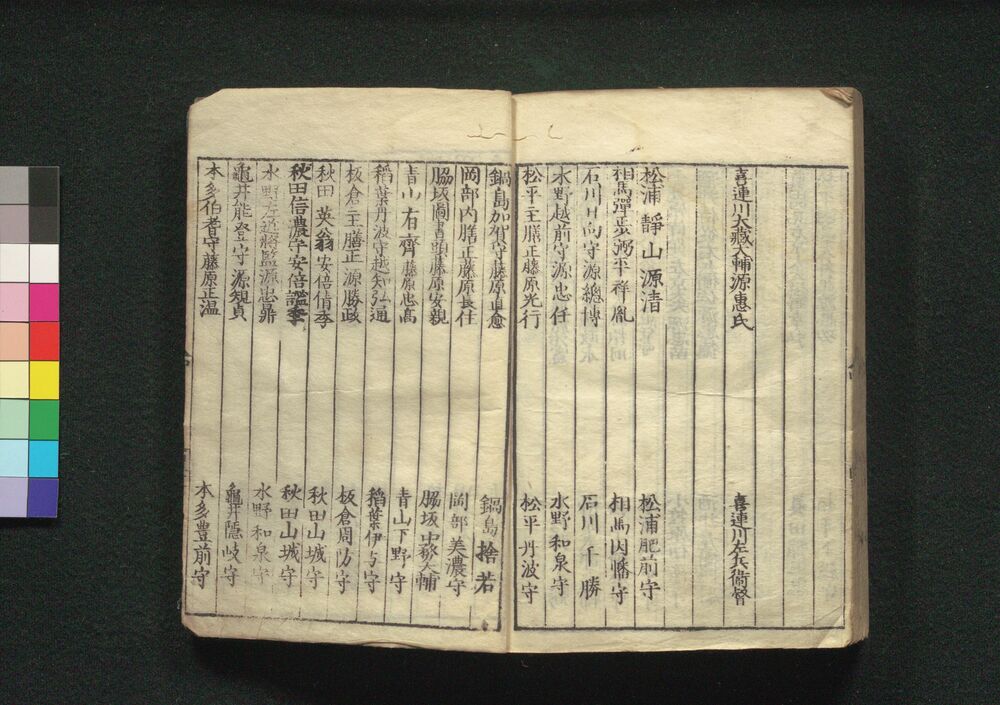 喜連川大藏大輔源惠氏　喜連川左兵衛督
松浦靜山源清　松浦肥前守
相馬彈正少弼平祥胤　相馬因幡守
石川日向守源總博　石川千勝
水野越前守源忠任　水野和泉守
松平主膳正藤原光行　松平丹波守
鍋島加賀守藤原直愈　鍋島捨若
岡部内膳正藤原長住　岡部美濃守
脇坂圖書頭藤原安親　脇坂中務大輔
青山右齊藤原忠高　青山下野守
稲葉丹波守越智弘通　稲葉伊与守
板倉主膳正源勝政　板倉周防守
秋田英翁安倍倩季　秋田山城守
秋田信濃守安倍謐季　秋田山城守
水野左近將監源忠鼎　水野和泉守
龜井能登守源矩貞　龜井隠岐守
本多伯耆守藤原正温　本多豊前守